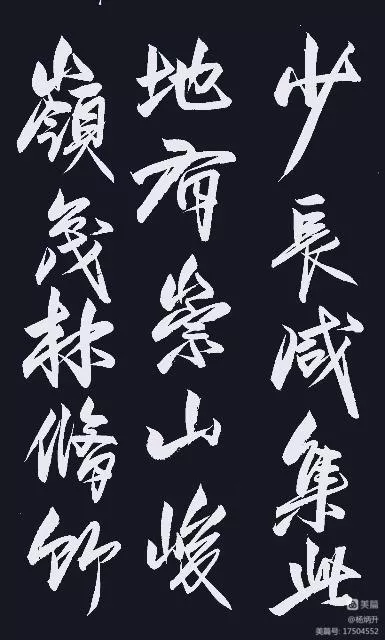 少長咸集此
地有崇山峻
嶺茂林脩竹
美篇
@杨炳升
美篇号: 17504552